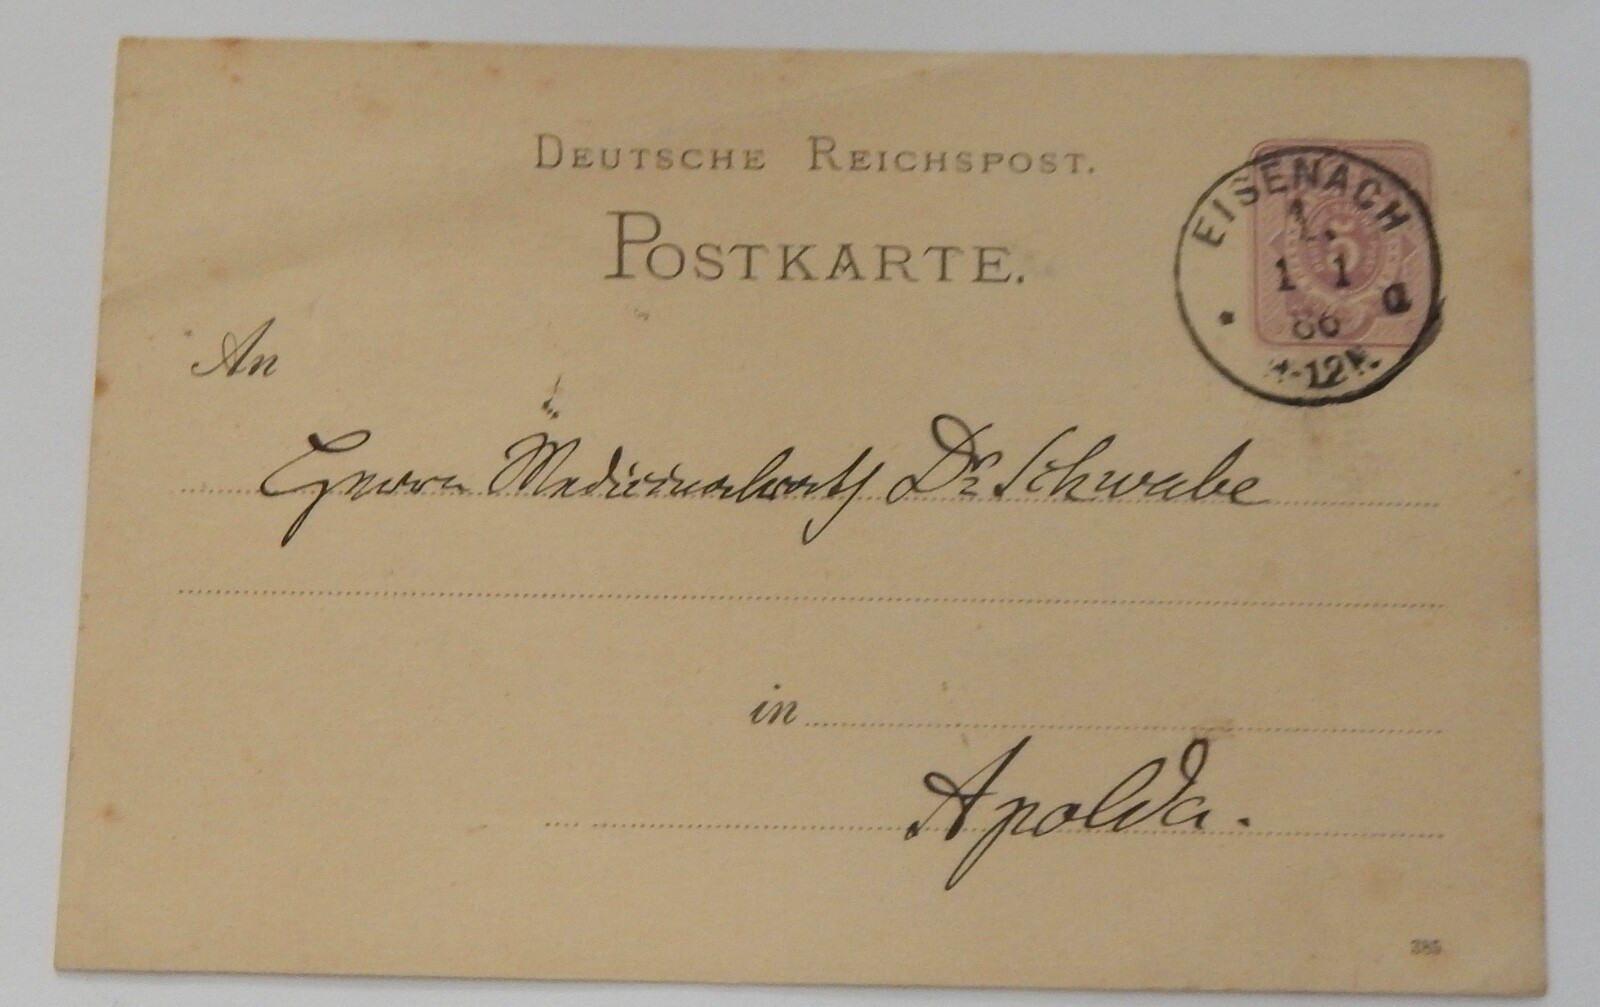 DEUTSCHE REICHSPOST.
POSTKARTE.
EISENACH
1.
1 1 a
86
-12V.
5
An
Herrn Medicinalrath Dr Schwabe
in
Apolda.
385